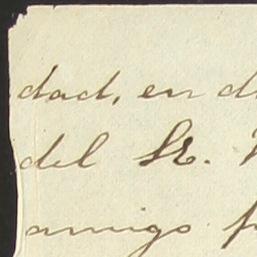 dad, en
del Sr.
amigo